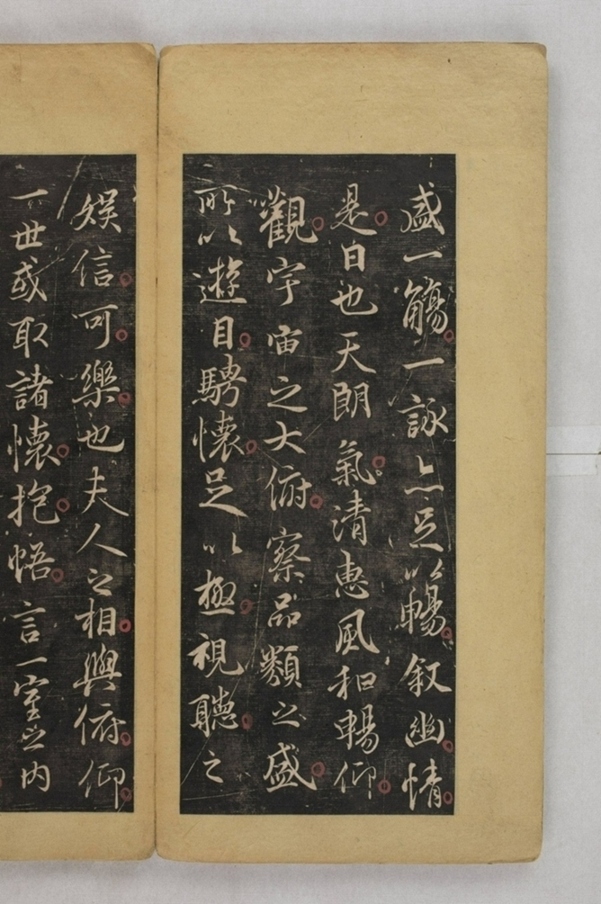 盛一觴一詠亦足以暢叙幽情
是日也天朗氣清惠風和暢仰
觀宇宙之大俯察品類之盛
所以遊目騁懷足以極視聽之
娛信可樂也夫人之相與俯仰
一世或取諸懷抱悟言一室之內